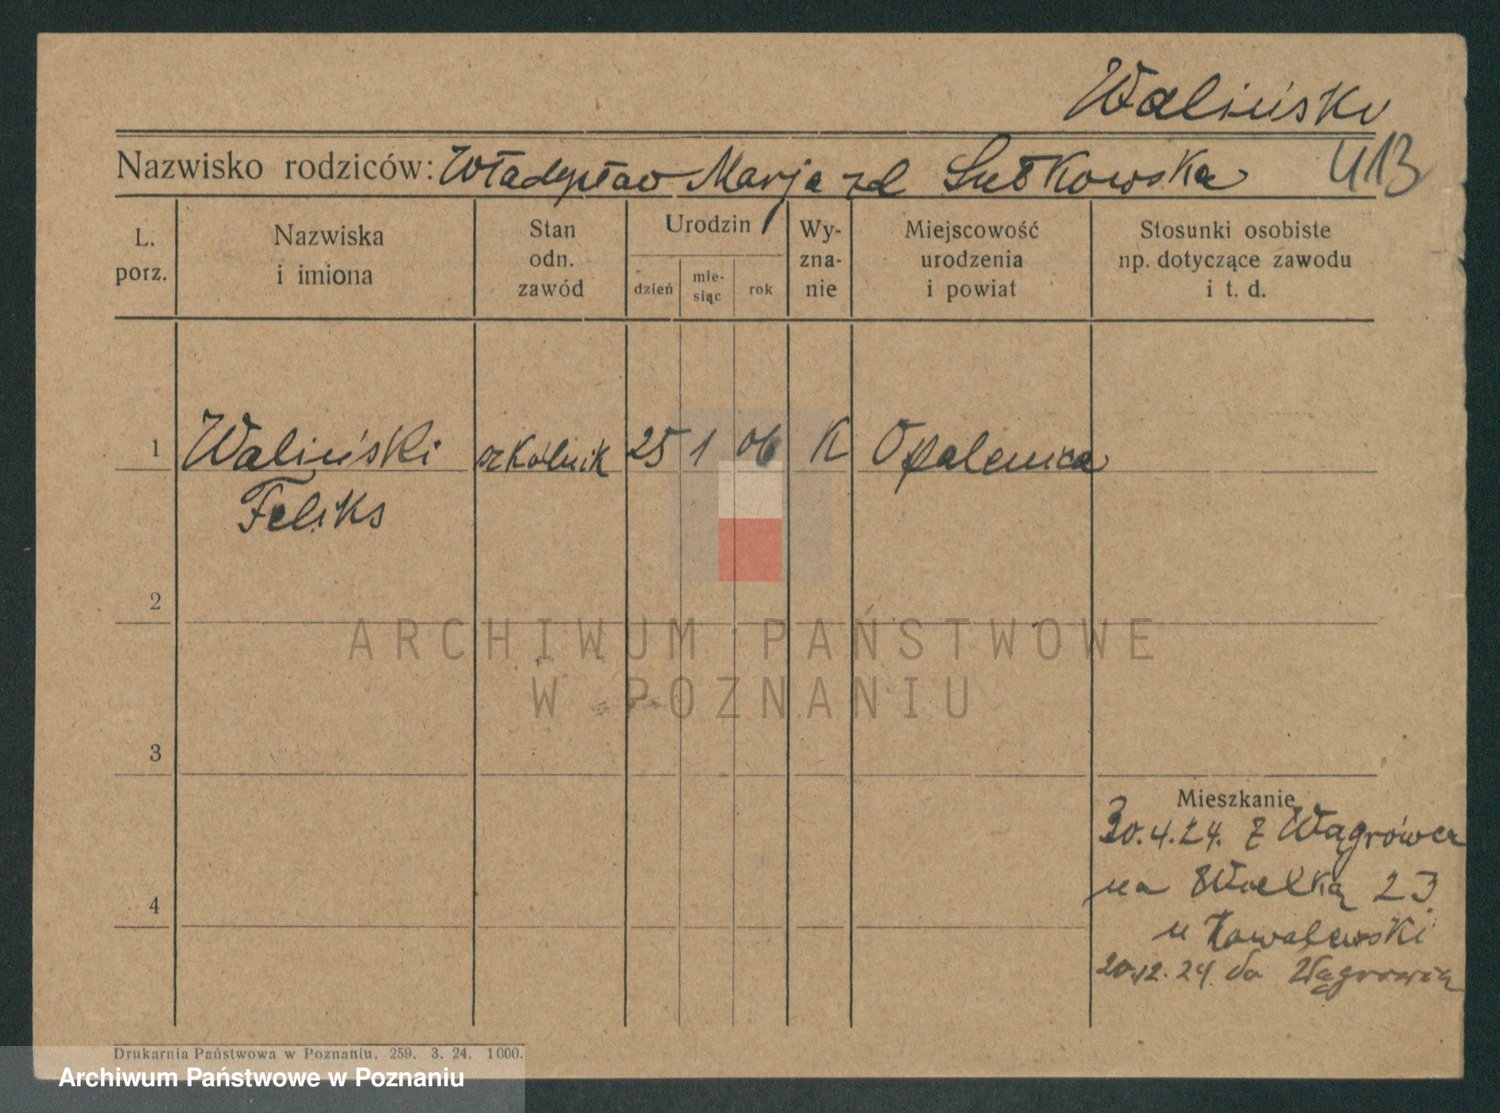 Waliński
Nazwisko rodziców: Władysław Marja zd Sutkowska 413
L. porz.
Nazwiska i imiona
Stan odn. zawód
Urodzin
dzień
mie-
siąc
rok
Wy-
zna-
nie
Miejscowość
urodzenia
i powiat
Stosunki osobiste
np. dotyczące zawodu
i t. d.
1 Waliński szkolnik 25 1 06 K Opalenica
Feliks
2
ARCHIWUM PAŃSTWOWE
W POZNANIU
3
Mieszkanie
30.4.24. z Wągrówca
na Wielką 23
4
u Kowalewski
20.12.24. do Wągrowca
Drukarnia Państwowa w Poznaniu. 259. 3. 24. 1000.
Archiwum Państwowe w Poznaniu